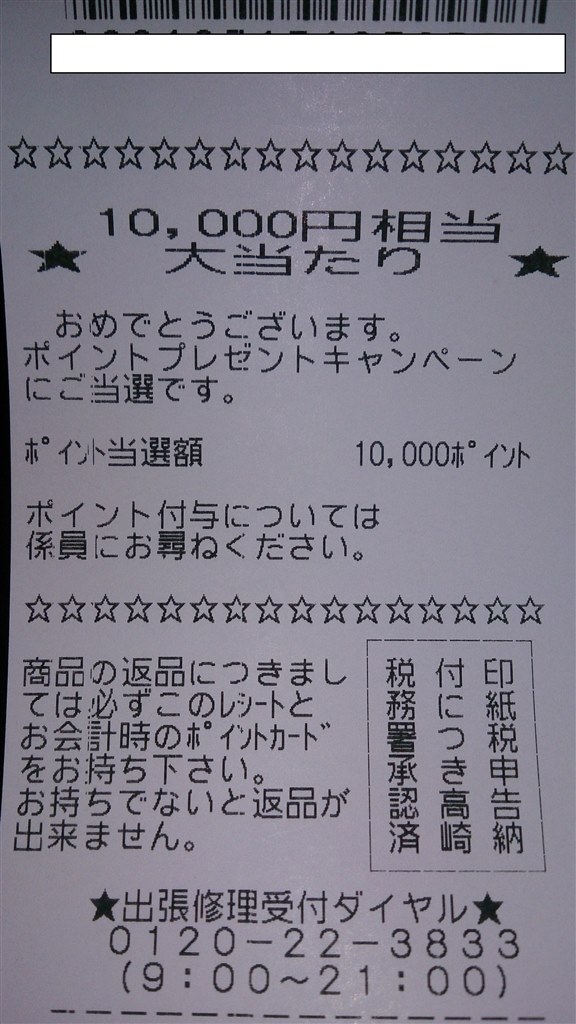 ☆☆☆☆☆☆☆☆☆☆☆☆☆☆☆☆
10,000円相当
★ 大当たり ★
おめでとうございます。
ポイントプレゼントキャンペーン
にご当選です。
ﾎﾟｲﾝﾄ当選額 10,000ﾎﾟｲﾝﾄ
ポイント付与については
係員にお尋ねください。
☆☆☆☆☆☆☆☆☆☆☆☆☆☆☆☆
商品の返品につきまし
ては必ずこのﾚｼｰﾄと
お会計時のﾎﾟｲﾝﾄｶｰﾄﾞ
をお持ち下さい。
お持ちでないと返品が
出来ません。
印紙税申告納
付につき高崎
税務署承認済
★出張修理受付ダイヤル★
0120-22-3833
(9:00～21:00)